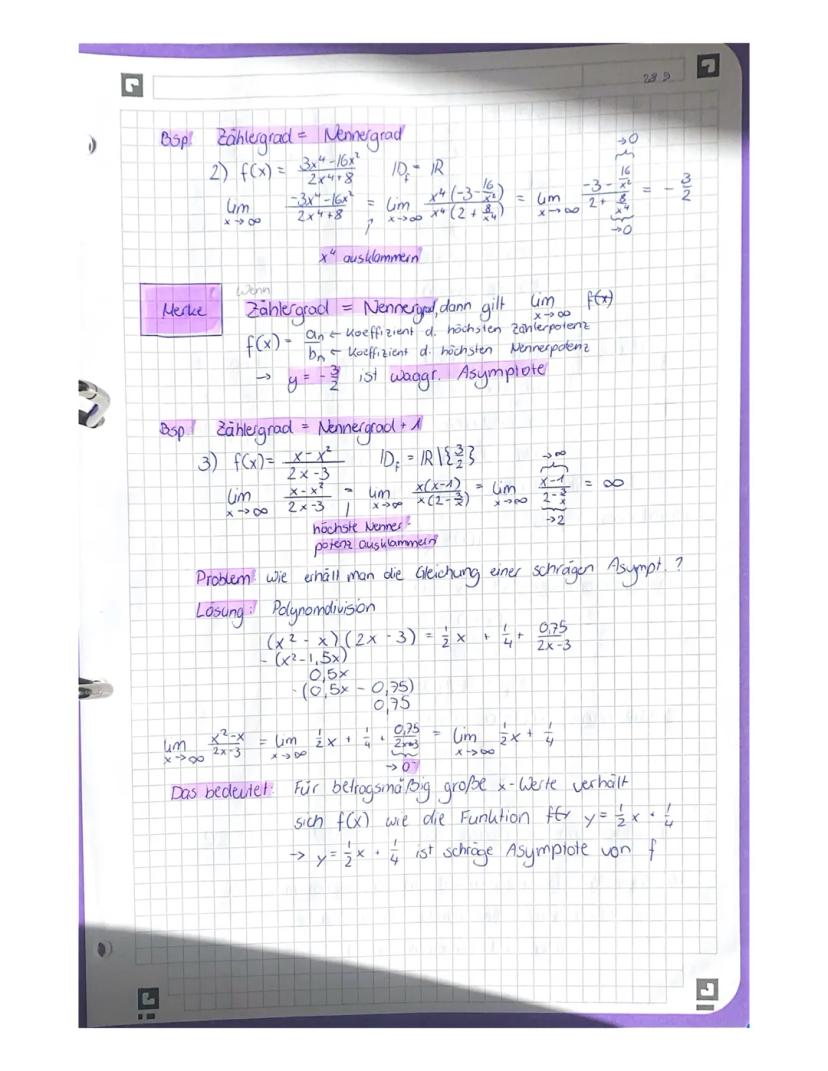 28.9
Bsp! Zählergrad = Nennergrad
2) f(x) = (3x⁴-16x²)/(2x⁴+8) ID_f = IR
lim x→∞ (-3x⁴-16x²)/(2x⁴+8) = lim x→∞ x⁴(-3-16/x²)/x⁴(2+8/x⁴) = lim x→∞ (-3-16/x²)/(2+8/x⁴) = -3/2
→0
→0
x⁴ ausklammern
Merke
Wenn
Zählergrad = Nennergrad, dann gilt lim x→∞ f(x)
f(x) = aₙ ← Koeffizient d. höchsten Zählerpotenz
bₙ ← Koeffizient d. höchsten Nennerpotenz
→ y = -3/2 ist waagr. Asymptote
Bsp! Zählergrad = Nennergrad + 1
3) f(x) = (x-x²)/(2x-3) ID_f = IR\{3/2}
lim x→∞ (x-x²)/(2x-3) = lim x→∞ x(x-1)/x(2-3/x) = lim x→∞ (x-1)/(2-3/x) = ∞
→∞
→2
höchste Nenner-
potenz ausklammern
Problem: Wie erhält man die Gleichung einer schrägen Asympt.?
Lösung: Polynomdivision
(x²-x)(2x-3) = 1/2 x + 1/4 + 0,75/(2x-3)
-(x²-1,5x)
0,5x
-(0,5x - 0,75)
0,75
lim x→∞ (x²-x)/(2x-3) = lim x→∞ 1/2 x + 1/4 + 0,75/(2x-3) = lim x→∞ 1/2 x + 1/4
→0
Das bedeutet: Für betragsmäßig große x-Werte verhält
sich f(x) wie die Funktion y = 1/2 x + 1/4
→ y = 1/2 x + 1/4 ist schräge Asymptote von f